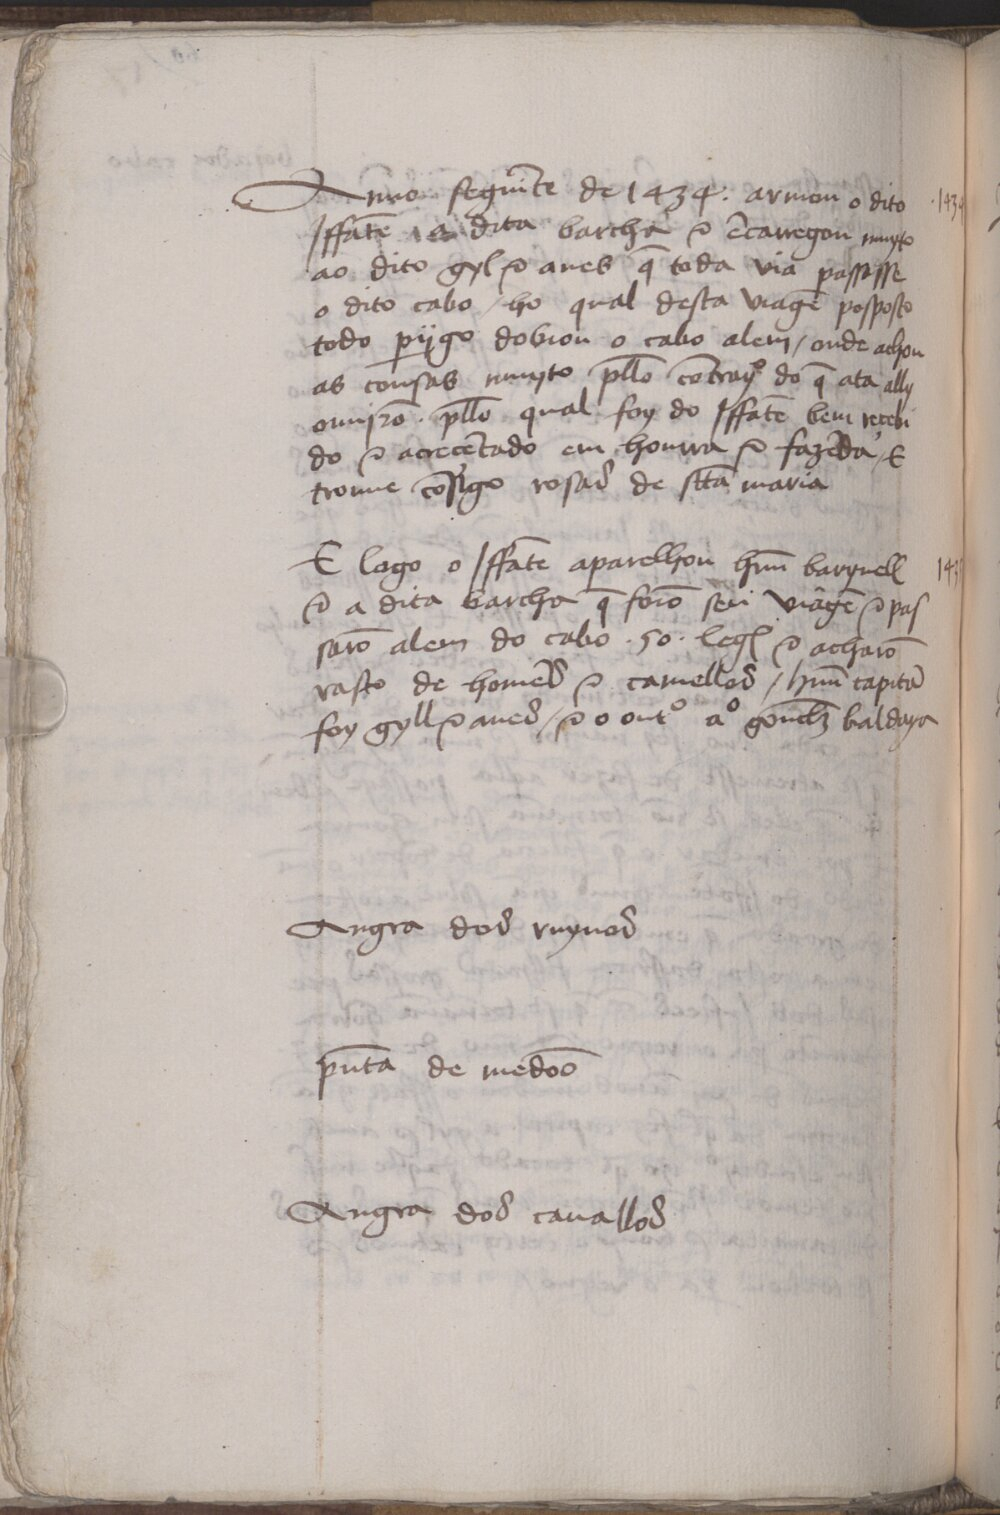 Anno seguīte de 1434. armou o dito
.1434
Iffāte a dita barcha e ēcarregou muyto
ao dito gyl e anes q̄ toda via passasse
o dito cabo / ho qual desta viagē posposto
todo periigo dobrou o cabo alem / onde achou
as cousas muyto pllo contrayº do q̄ ata ally
ouuirō . pllo qual foy do Iffāte bem recebi
do e acrecētado em honrra e fazēda / E
trouue cōsigo rosas de sctā maria
E logo o Iffāte aparelhou hūu barquell
143
e a dita barcha q̄ forō seu viagē e pas
sarō alem do cabo . 50 . legs e acharō
rasto de homēs e camellos / hūu capitā
foy gyll e anes / e o outº aº gonclz baldaya
Angra dos ruyuos
pūta de medoōs
Angra dos cauallos